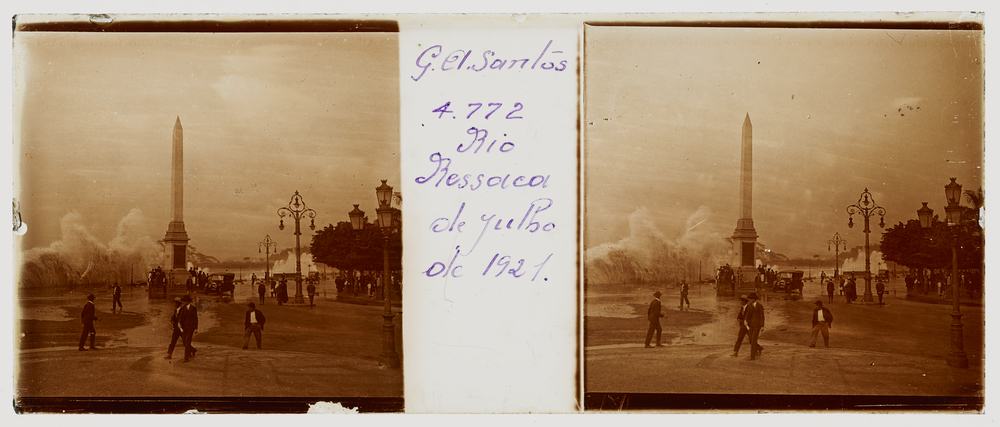 G. A. Santos
4.772
Rio
Ressaca
de Julho
de 1921.